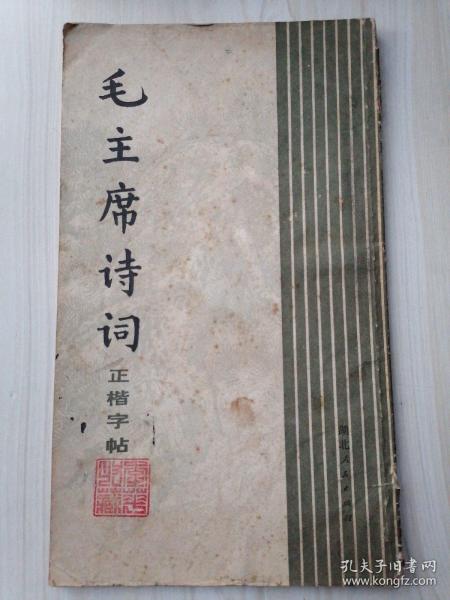 毛主席诗词
正楷字帖
湖北人民出版社
孔夫子旧书网
www.kongfz.com